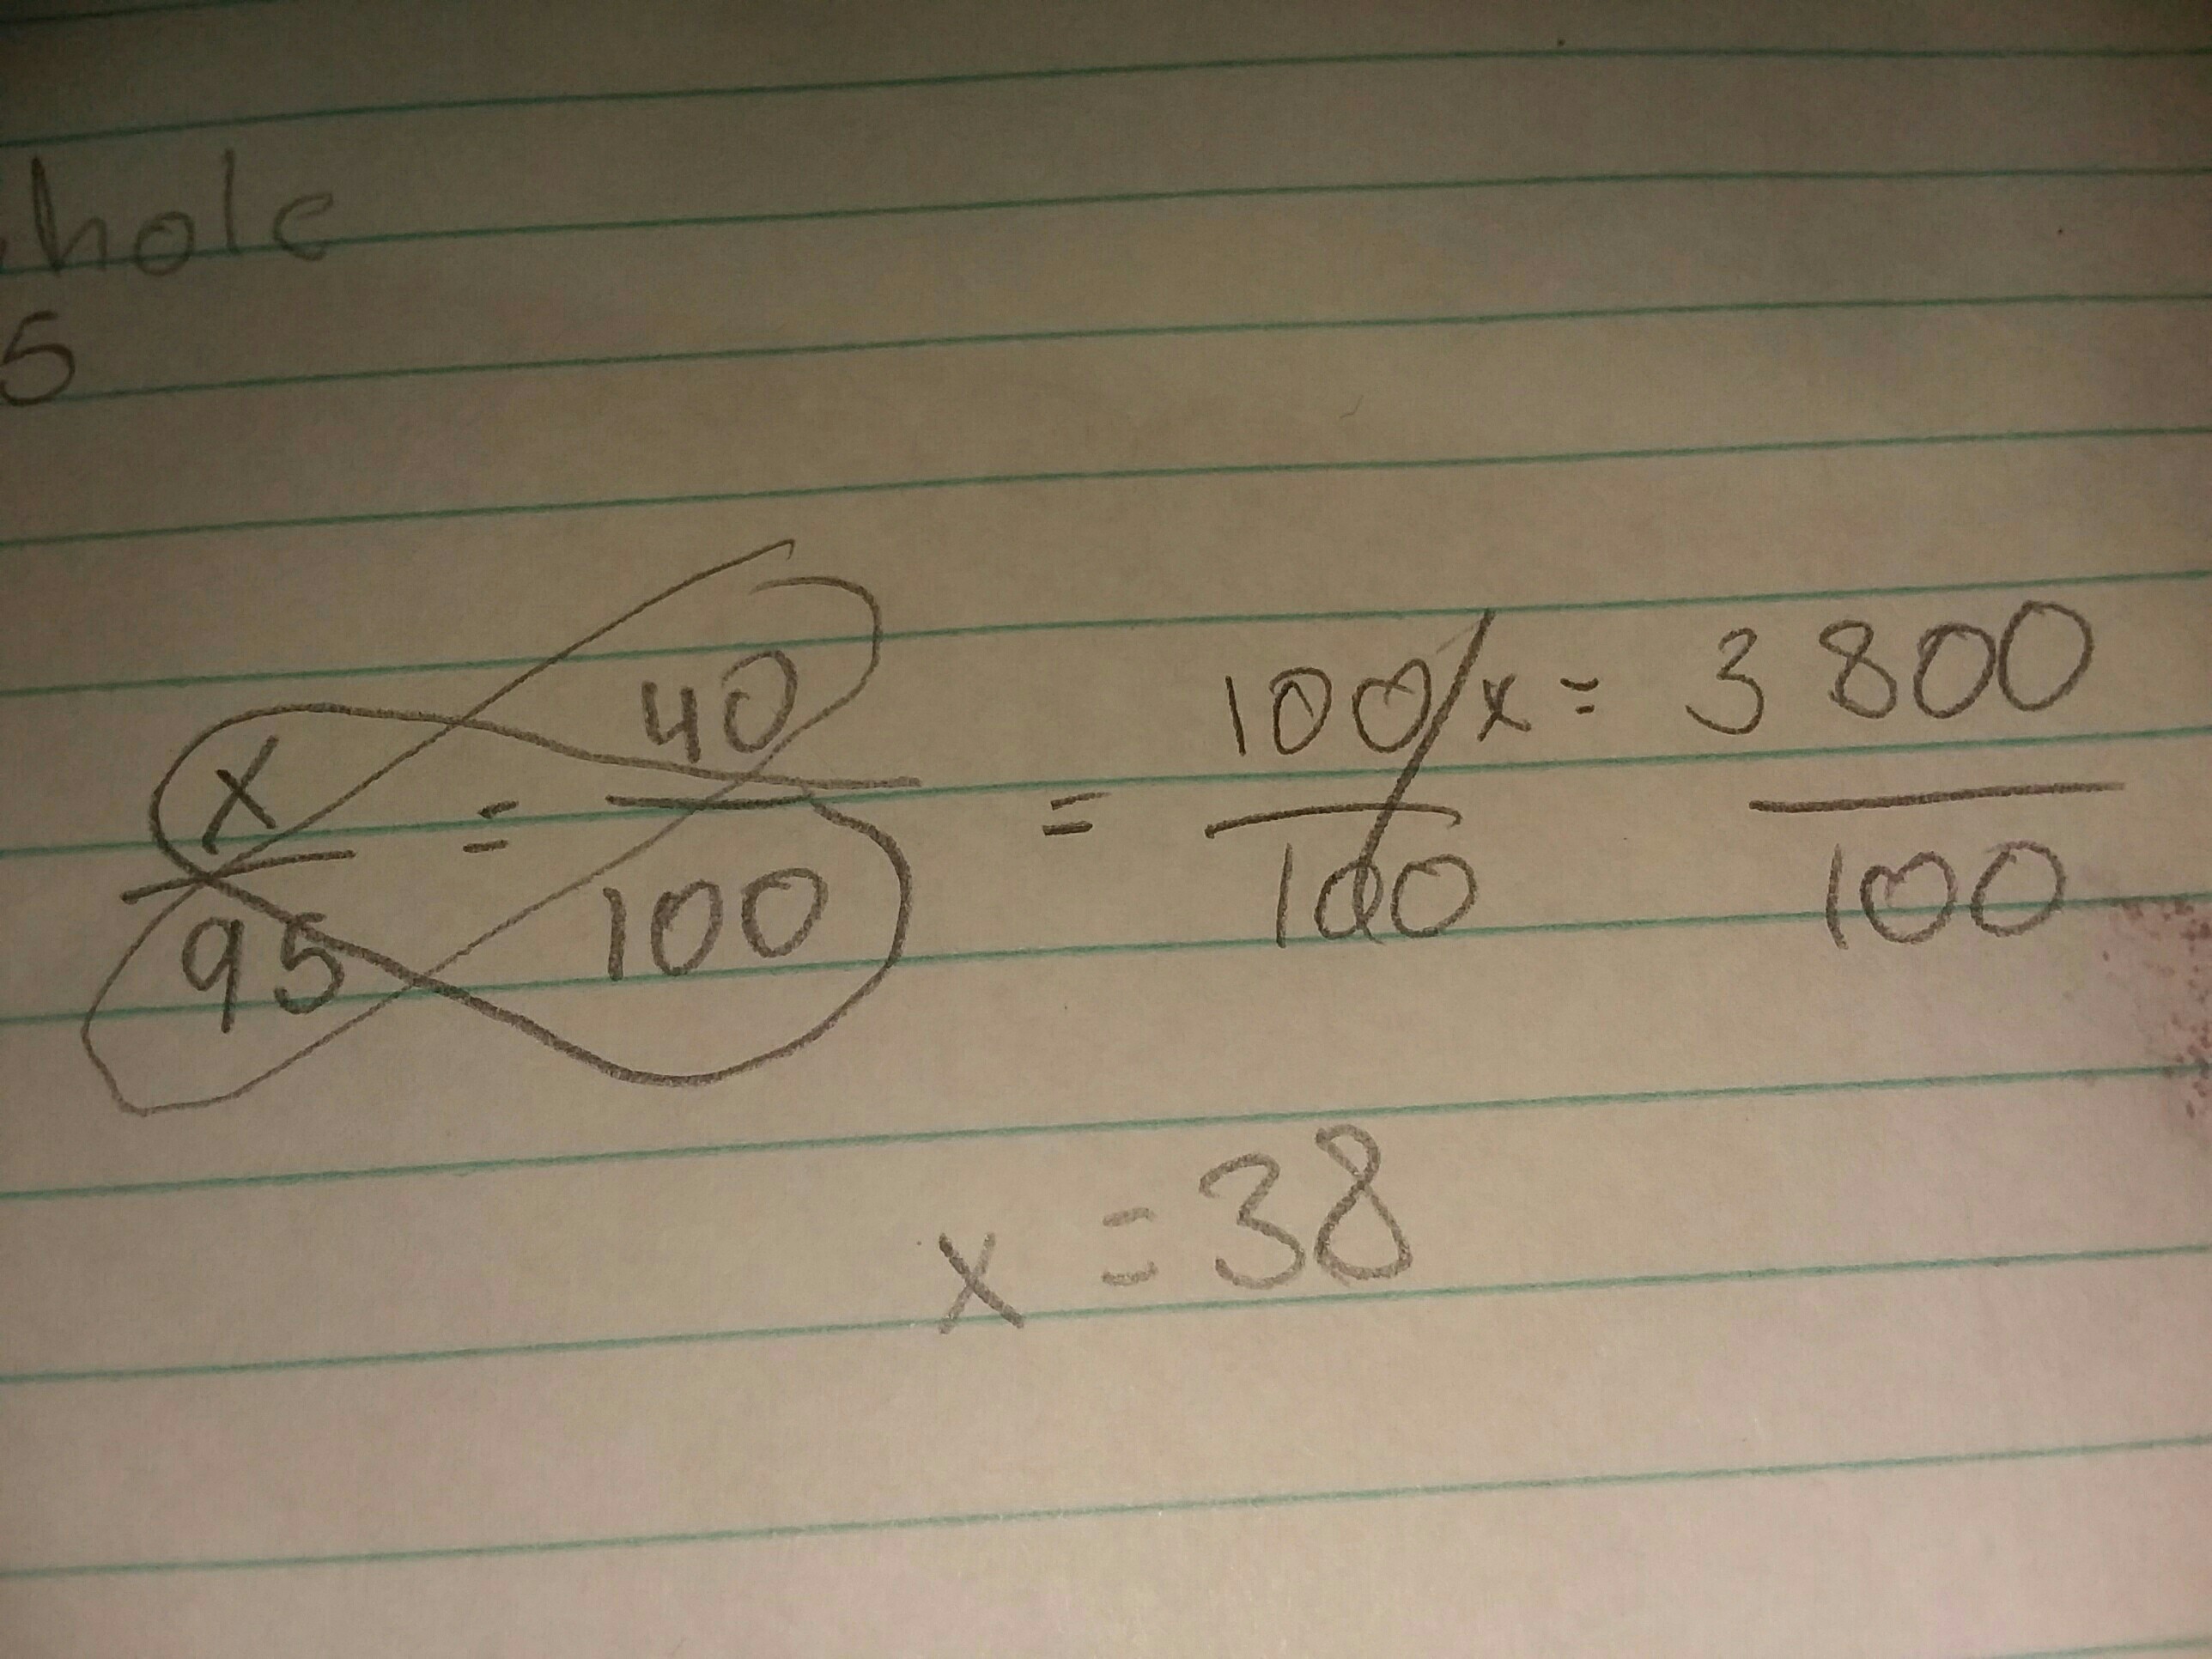 hole
5
x/95 = 40/100 = 100x/100 = 3800/100
x = 38